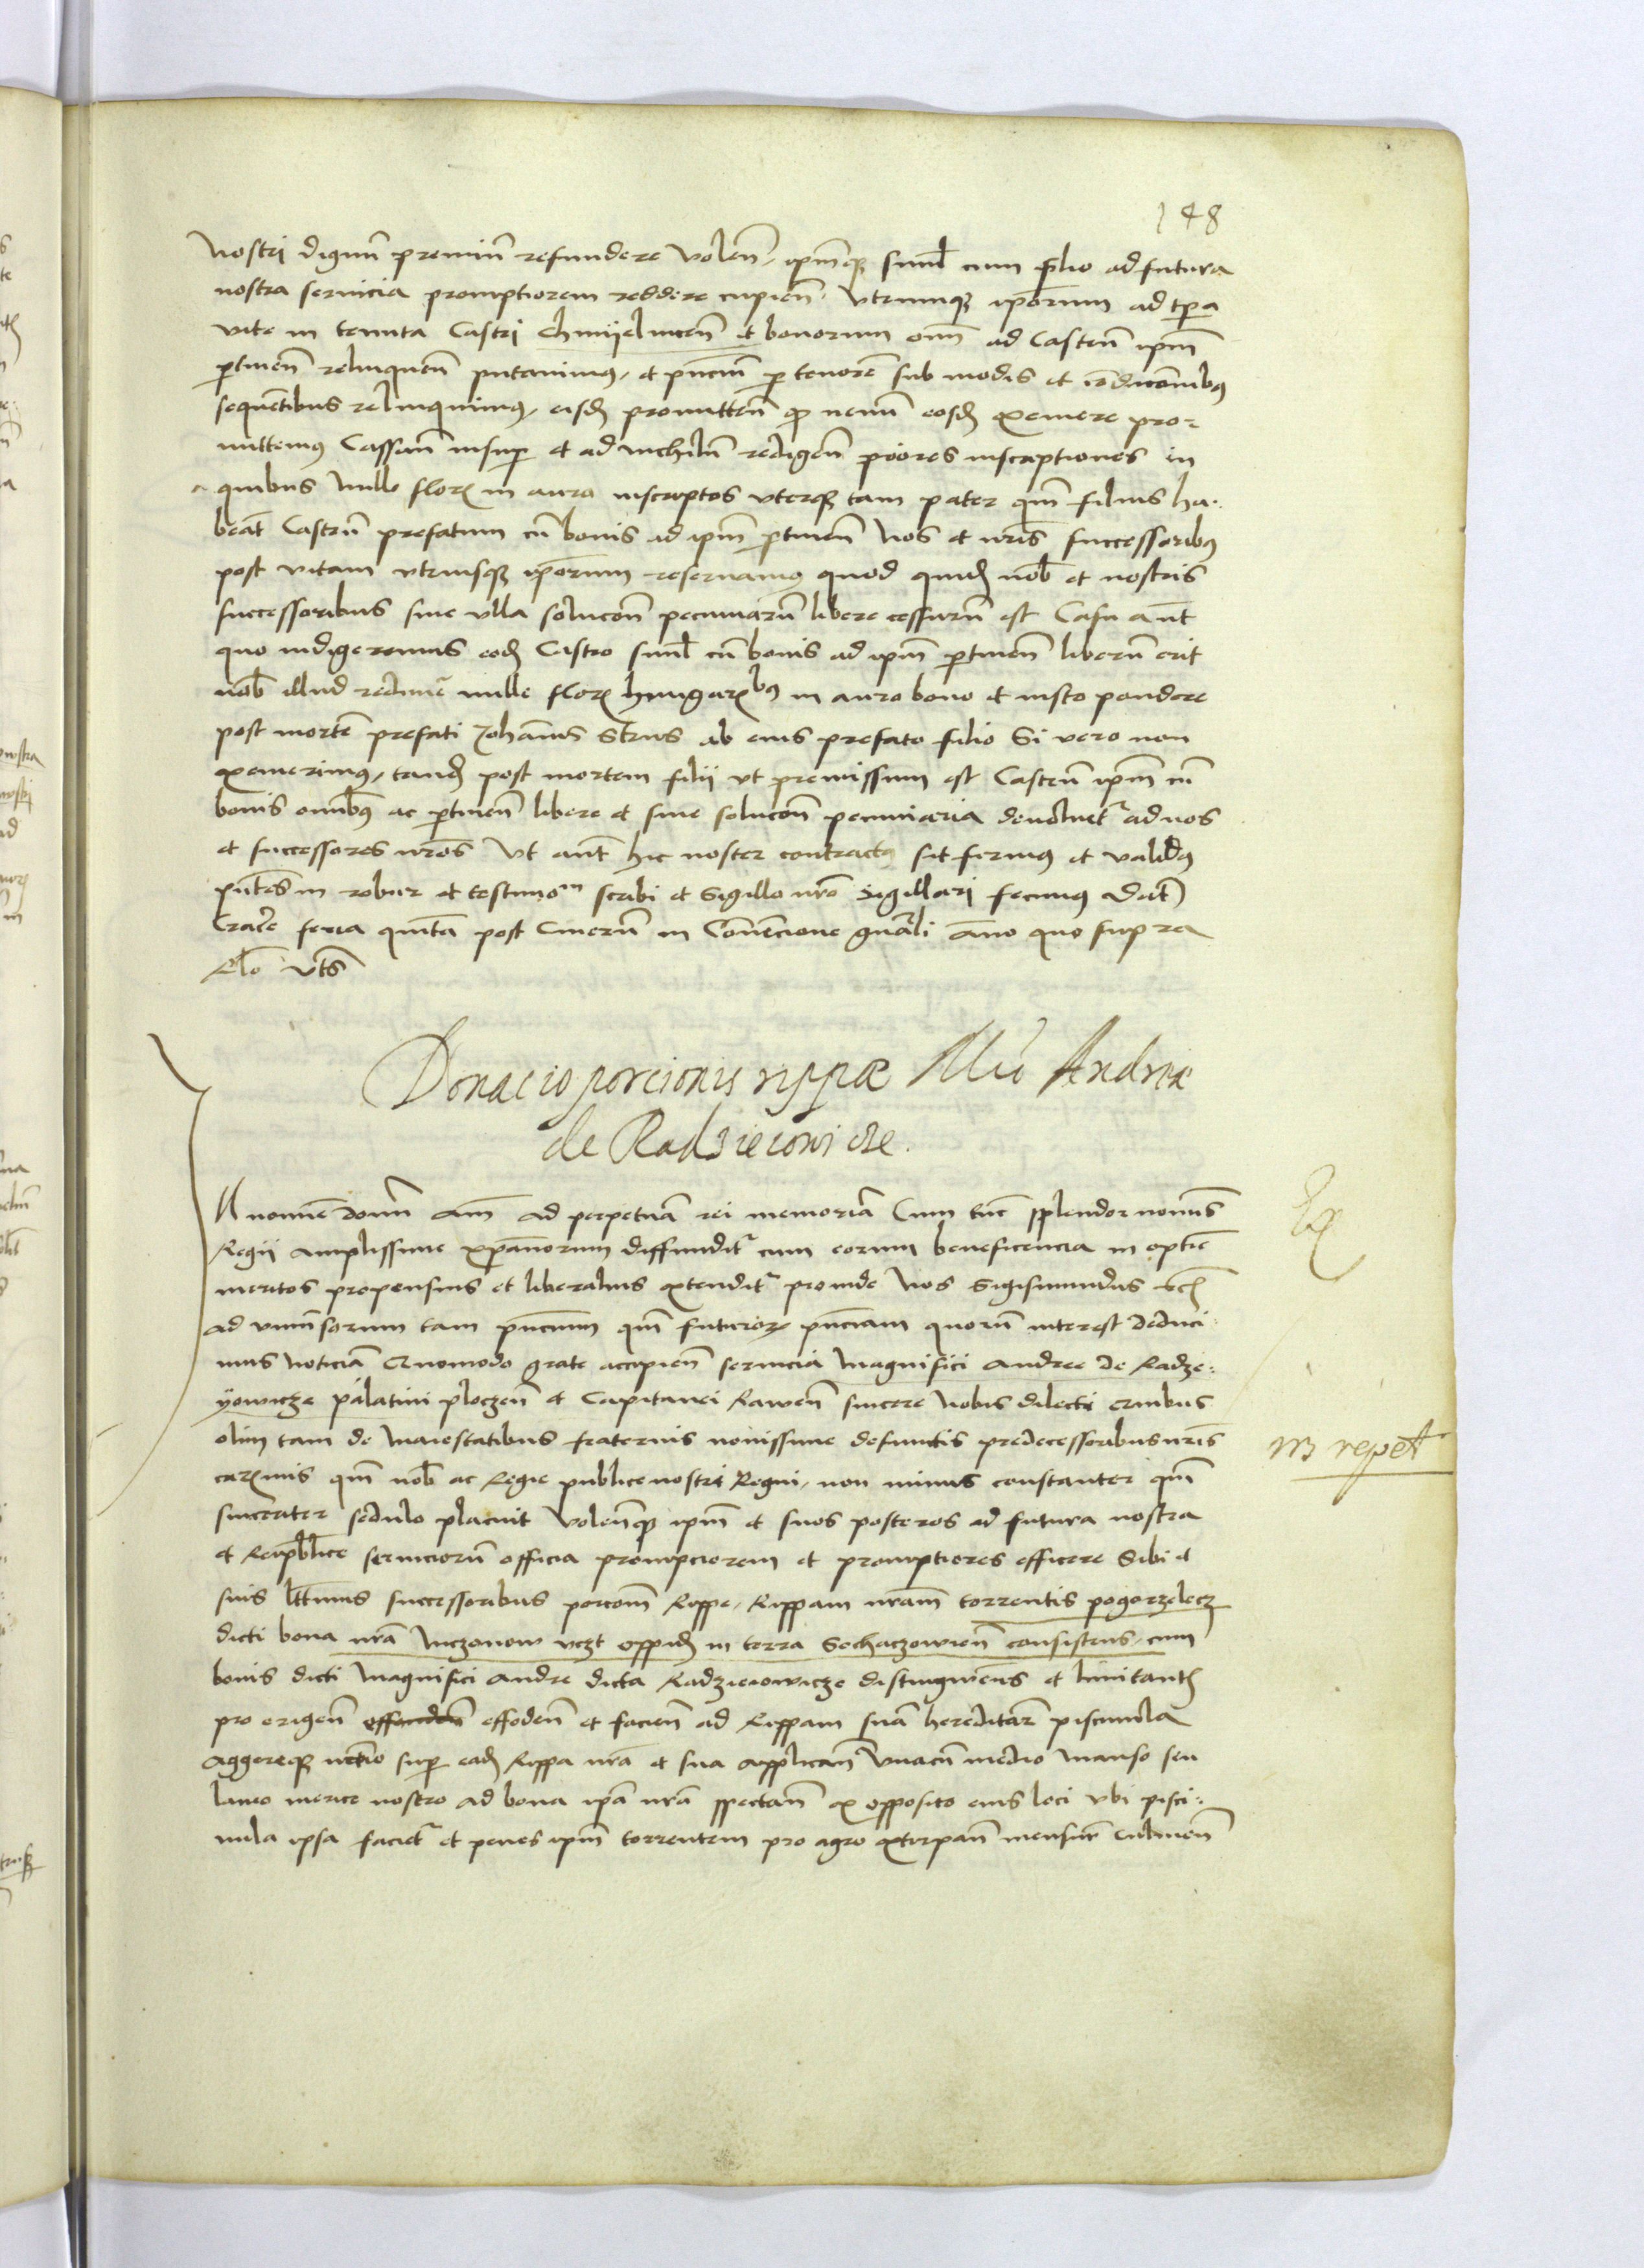 148
nostri dignũ premiũ refundere volen̄, ip̄mq̃ simul cum filio ad futura
nostra seruicia promptiorem reddere cupien̄, vtrumq̃ ip̄orum ad tp̄a
vite in tenuta Castri Chmijelnicen̄ et bonorum om̄ ad Castrũ ip̄m
p̱tinen̄ relinquen̄ putauimus, et p̄ncium p̱ tenorē sub modis et cōdicionibus
sequētibus relinquimus, eisd̄ promitten̄ q̱ nemini eosd̄ eximere pro-
mittemus Cassan̄ insup̱ et ad nichilũ redigen̄ p̱ores inscriptiones in
quibus mille flor̄ in auro inscriptos vterq̃ tam pater qm̄ filius ha-
beāt Castrũ prefatum cũ bonis ad ip̄m p̱tinen̄ nos et nr̄is successoribus
post vitam vtriusq̃ ip̄orum reseruamus quod quid̄ nob̄ et nostris
successoribus sine vlla solucōn pecuniarũ libere cessurũ est Casu aūt
quo indigeremus eod̄ Castro simul cũ bonis ad ip̄m p̱tinen̄ liberũ erit
nob̄ illud redimē mille flor̄ hungar̄bus in auro bono et iusto pondere
post mortē prefati Johānis Strus ab eius prefato filio Si vero non
exemerimus, tand̄ post mortem filij vt premissum est Castrũ ip̄m cũ
bonis omibus ac p̱tinen̄ libere et sine solucōn pecuniaria deuoluet̄ ad nos
et successores nr̄os Vt aūt hic noster contractus sit firmus et validus
p̄ntes in robur et testimom scribi et Sigillo nr̄o sigillari fecimus Dat̄
Crac̄e feria quīta post Cinerũ in Conuēcione gn̄ali Ānno quo supra
Rl̄o vts̄
Donacio porcionis rippæ M̄ci Andreæ
de Radzieiowicze.
IN nomīe domī am̄ ad perpetuā rei memoriā Cum tūc splendor nomīs
Regii amplissime xp̄ianorum diffundit̄ cum eorum beneficencia in optīe
meritos propensius et liberalius extendit̄ proinde Nos Sigismundus etc̄
ad vniūsorum tam p̄ncium qm̄ futuror̄ p̄nciam quorũ interest deduci-
mus noticiā Quomodo grate accipien̄ seruicia Magnifici Andree de Radze-
yowicze palatini ploczen̄ et Capitanei Rawen̄ sincere nobis dilecti quibus
olim tam de Maiestatibus fraternis nouissime defunctis predecessoribus nr̄is
car̄mis qm̄ nob̄ ac Regie publice nostri Regni, non minus constanter qm̄
sinceriter sedulo placuit Volen̄q̃ ip̄m et suos posteros ad futura nostra
et Reipublice seruiciorũ officia prompciorem et promptiores efficere Sibi et
suis l̄ttimis successoribus porcōn̄ Rippe, Rippam nr̄am torrentis pogorzelecz
dicti bona nr̄a Mczonow vczt oppid̄ in terra Sochaczowien̄ consistens, cum
bonis dicti Magnifici Andree dicta Radzieiowicze distinguens et limitant̄
pro erigen̄ effoden̄ et facien̄ ad Rippam suā hereditar̄ piscinula
aggereq̃ recto sup̱ ead̄ Rippa nr̄a et sua applicam̄ Vnacũ medio Manso seu
laneo merice nostro ad bona ip̄a nr̄a spectan̄ ex opposito eius loci vbi pisci-
nula ipsa faciet̄ et penes ip̄m torrentem pro agro extirpan̄ mensure culmen̄
Ex
repet